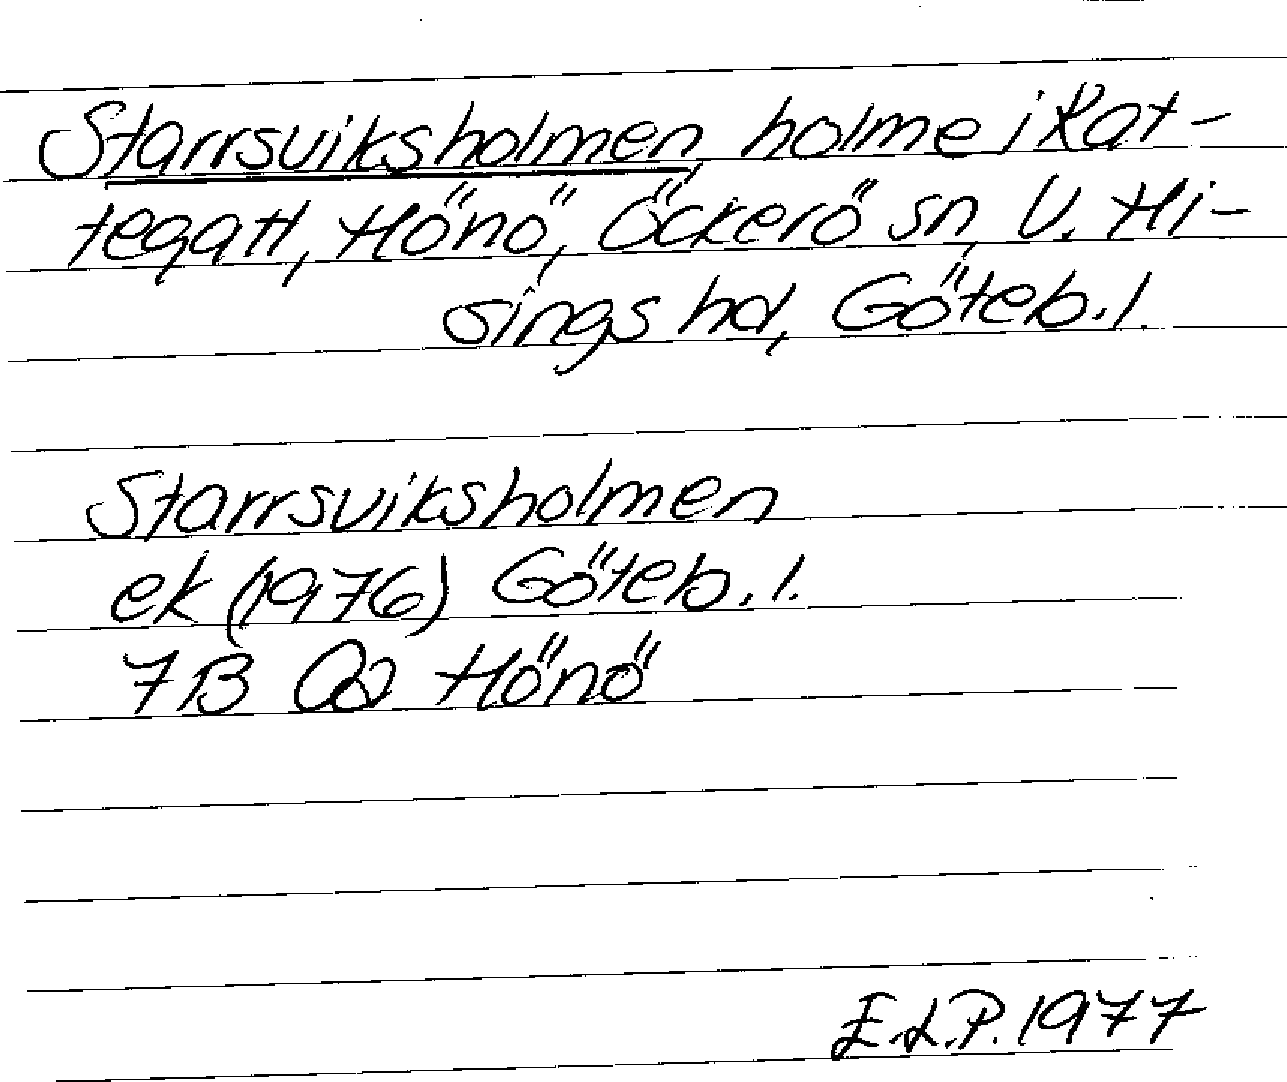 Starrsviksholmen holme i Kat-
tegatt, Hönö, Öckerö sn, V. Hi-
sings hd, Göteb. l.
Starrsviksholmen
ek (1976) Göteb. l.
7B Hönö
E.L.P. 1977